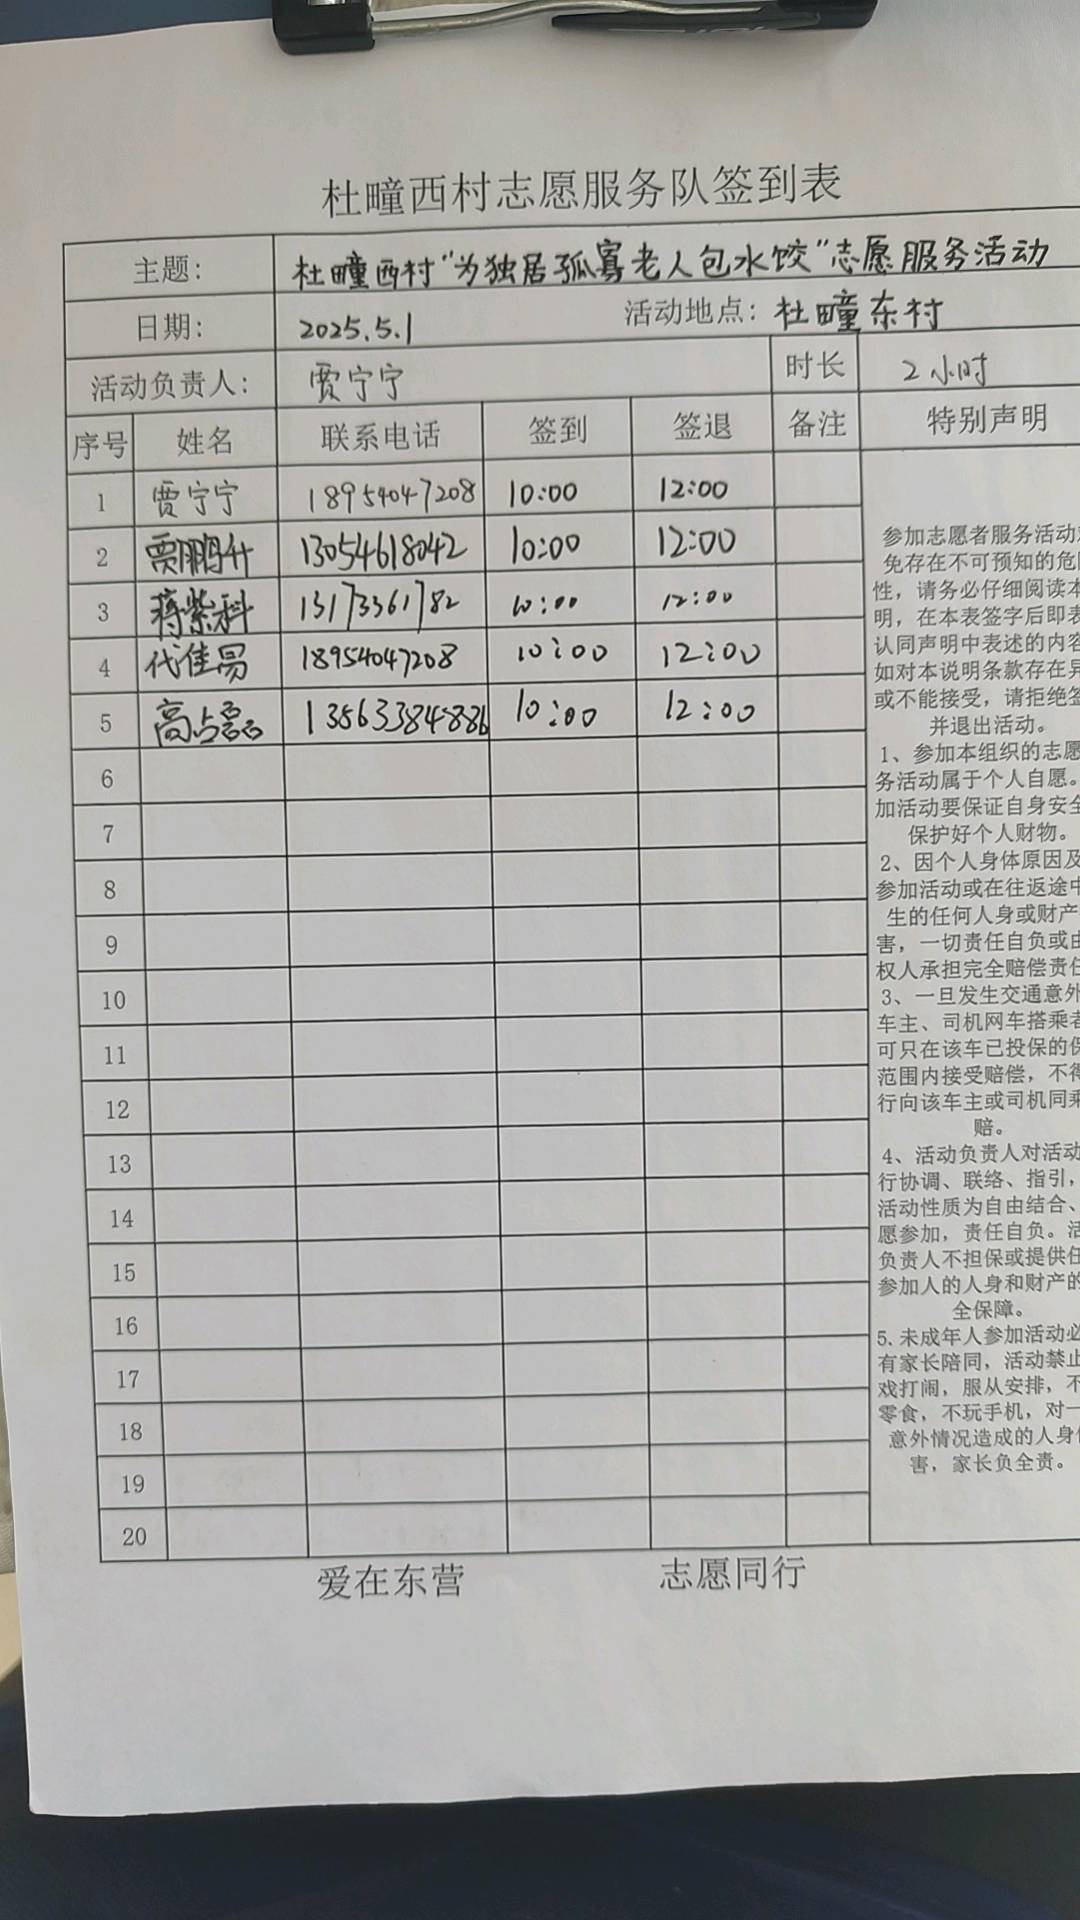 杜疃西村志愿服务队签到表
主题： 杜疃西村“为独居孤寡老人包水饺”志愿服务活动
日期： 2025.5.1 活动地点：杜疃东村
活动负责人： 贾宁宁 时长 2小时
序号 姓名 联系电话 签到 签退 备注 特别声明
1 贾宁宁 18954047208 10:00 12:00
2 贾鹏升 13054618042 10:00 12:00
3 蒋紫科 13173361782 10:00 12:00
4 代佳易 18954047208 10:00 12:00
5 高占磊 13563384886 10:00 12:00
6
7
8
9
10
11
12
13
14
15
16
17
18
19
20
参加志愿者服务活动
免存在不可预知的危
性，请务必仔细阅读本
明，在本表签字后即表
认同声明中表述的内容
如对本说明条款存在异
或不能接受，请拒绝签
并退出活动。
1、参加本组织的志愿
务活动属于个人自愿。
加活动要保证自身安全
保护好个人财物。
2、因个人身体原因及
参加活动或在往返途中
生的任何人身或财产
害，一切责任自负或由
权人承担完全赔偿责任
3、一旦发生交通意外
车主、司机网车搭乘者
可只在该车已投保的保
范围内接受赔偿，不得
行向该车主或司机同乘
赔。
4、活动负责人对活动
行协调、联络、指引，
活动性质为自由结合、
愿参加，责任自负。活
负责人不担保或提供任
参加人的人身和财产的
全保障。
5.未成年人参加活动必
有家长陪同，活动禁止
戏打闹，服从安排，不
零食，不玩手机，对一
意外情况造成的人身
害，家长负全责。
爱在东营 志愿同行